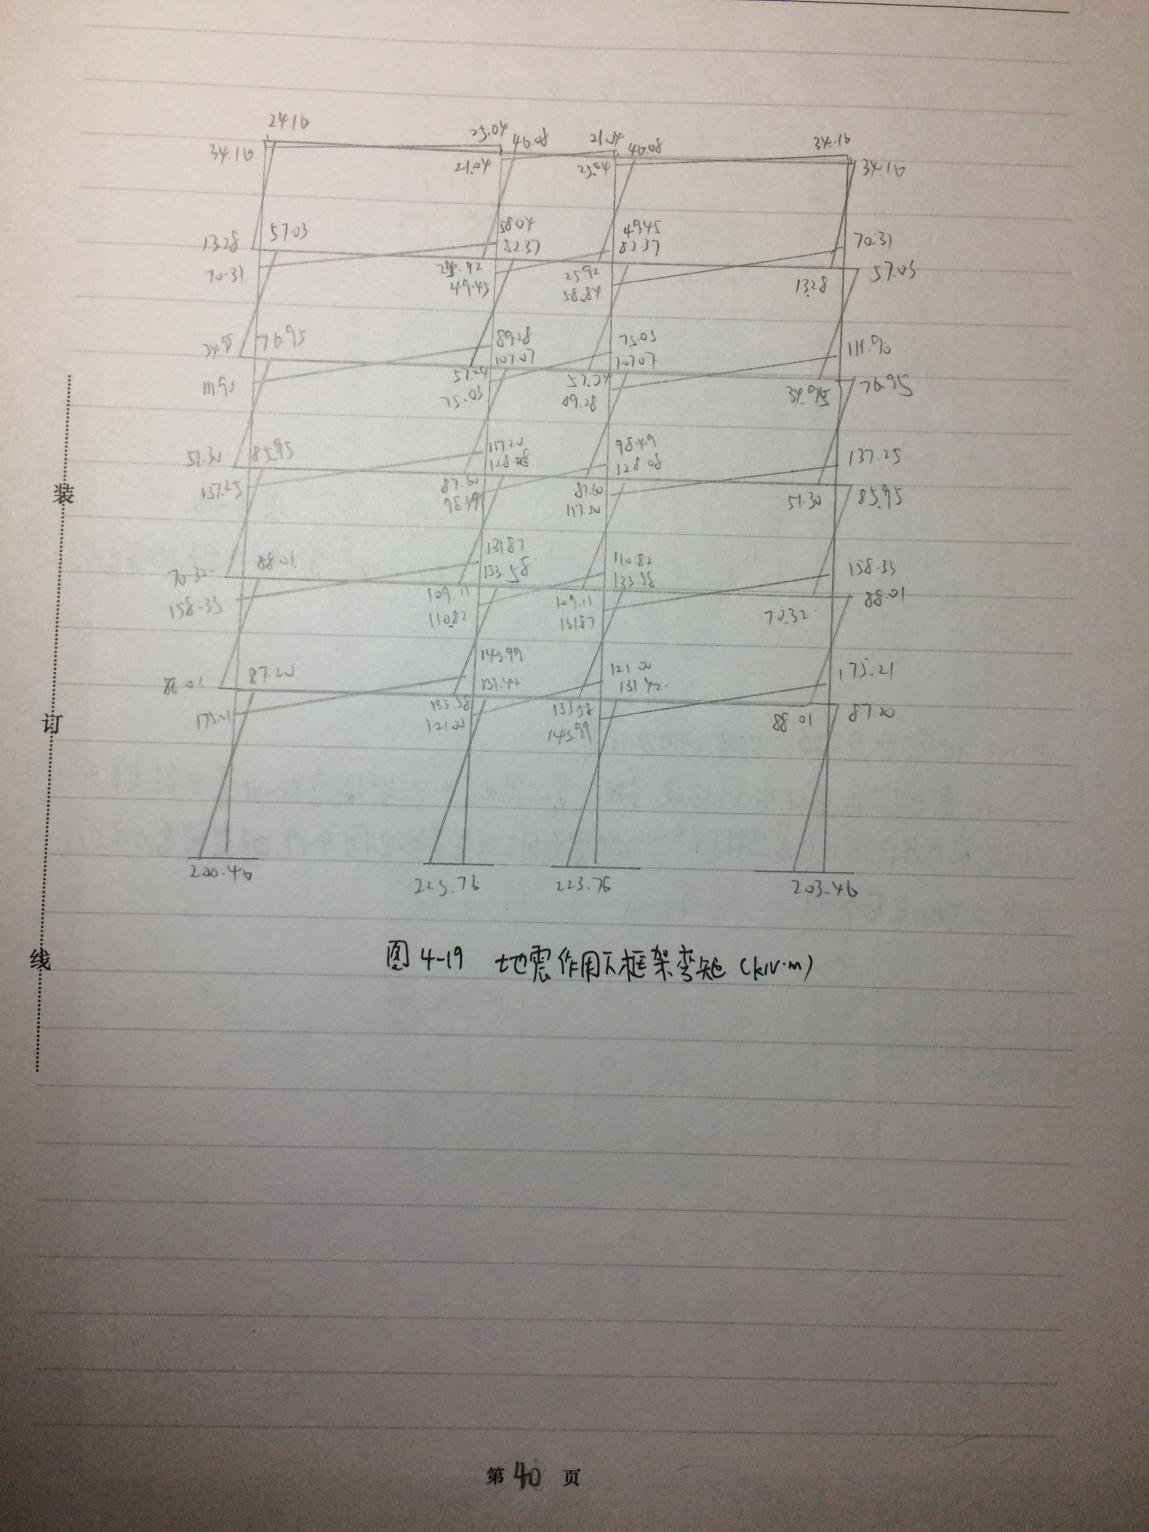 24.16 23.04 46.08 21.04 46.08 34.16
34.16 21.04 23.04 34.16
13.28 57.03 58.04 49.45 70.31
82.37 82.37
70.31 49.45 25.92 13.28 57.03
58.84
76.95 89.28 75.03 111.90
107.07 107.07
57.24 57.24 34.95 76.95
75.03 89.28
51.30 85.95 117.20 98.49 137.25
128.08 128.08
137.25 87.60 87.60 51.30 85.95
98.49 117.20
70.32 88.01 131.87 110.82 158.33
133.58 133.58
158.33 109.11 109.11 70.32 88.01
110.82 131.87
88.01 87.20 145.99 121.00 175.21
131.42 131.42
175.21 133.58 133.58 88.01 87.20
121.00 145.99
200.46 223.76 223.76 203.46
图4-19 地震作用下框架弯矩(kN·m)
装
订
线
第40页